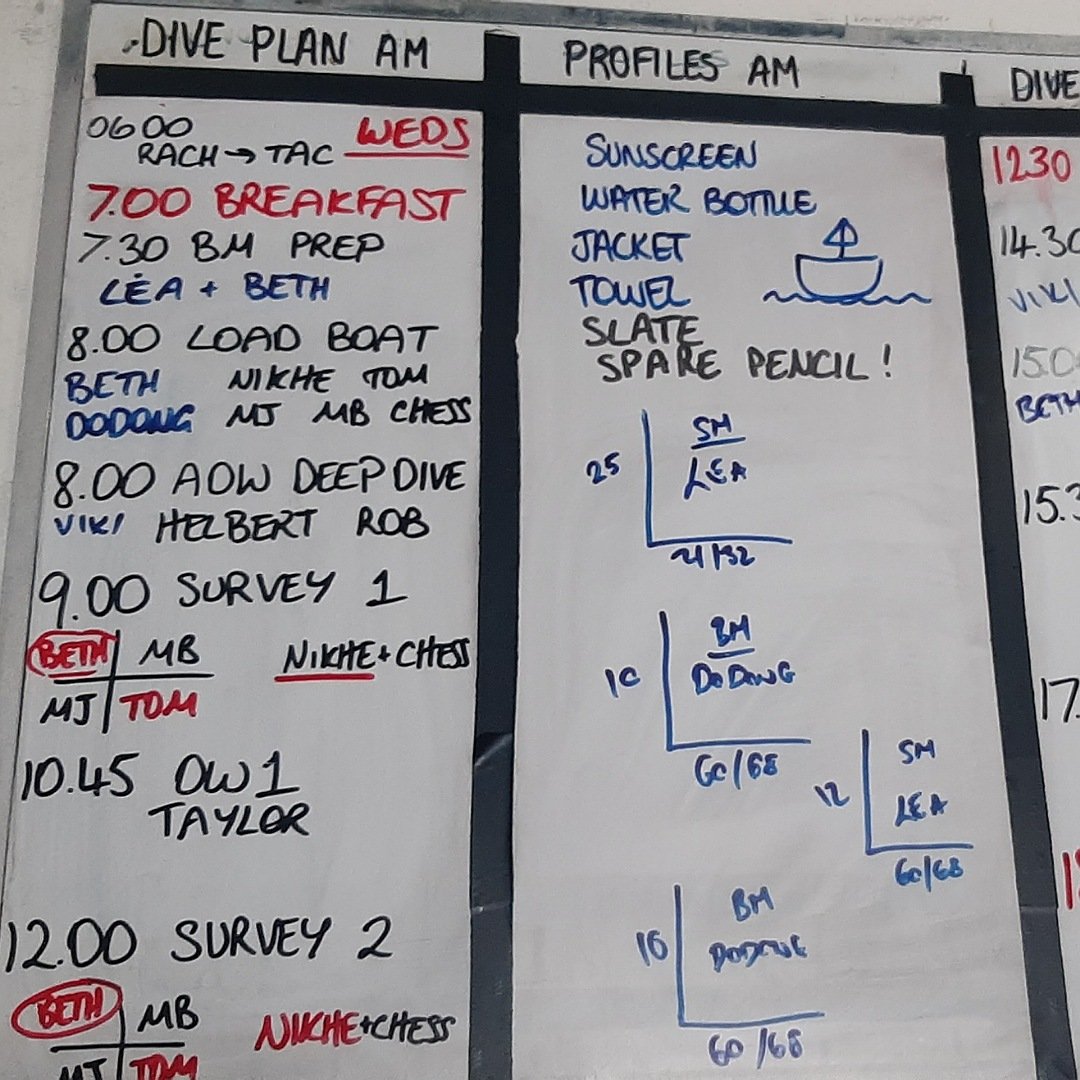 DIVE PLAN AM
0600 WEDS
RACH → TAC
7.00 BREAKFAST
7.30 BM PREP
LÉA + BETH
8.00 LOAD BOAT
BETH NIKHE TOM
DODONG MJ MB CHESS
8.00 AOW DEEP DIVE
VIKI HELBERT ROB
9.00 SURVEY 1
BETH MB NIKHE + CHESS
MJ TOM
10.45 OW1
TAYLOR
12.00 SURVEY 2
BETH MB NIKHE + CHESS
MJ TOM
PROFILES AM
SUNSCREEN
WATER BOTTLE
JACKET
TOWEL
SLATE
SPARE PENCIL!
SM
25 LEA
21/32
BM
10 DODONG
60/68
SM
12 LEA
60/68
BM
16 DODONG
60/68
DIVE
1230
14.30
VIKI
15.0
BETH
15.3
17.